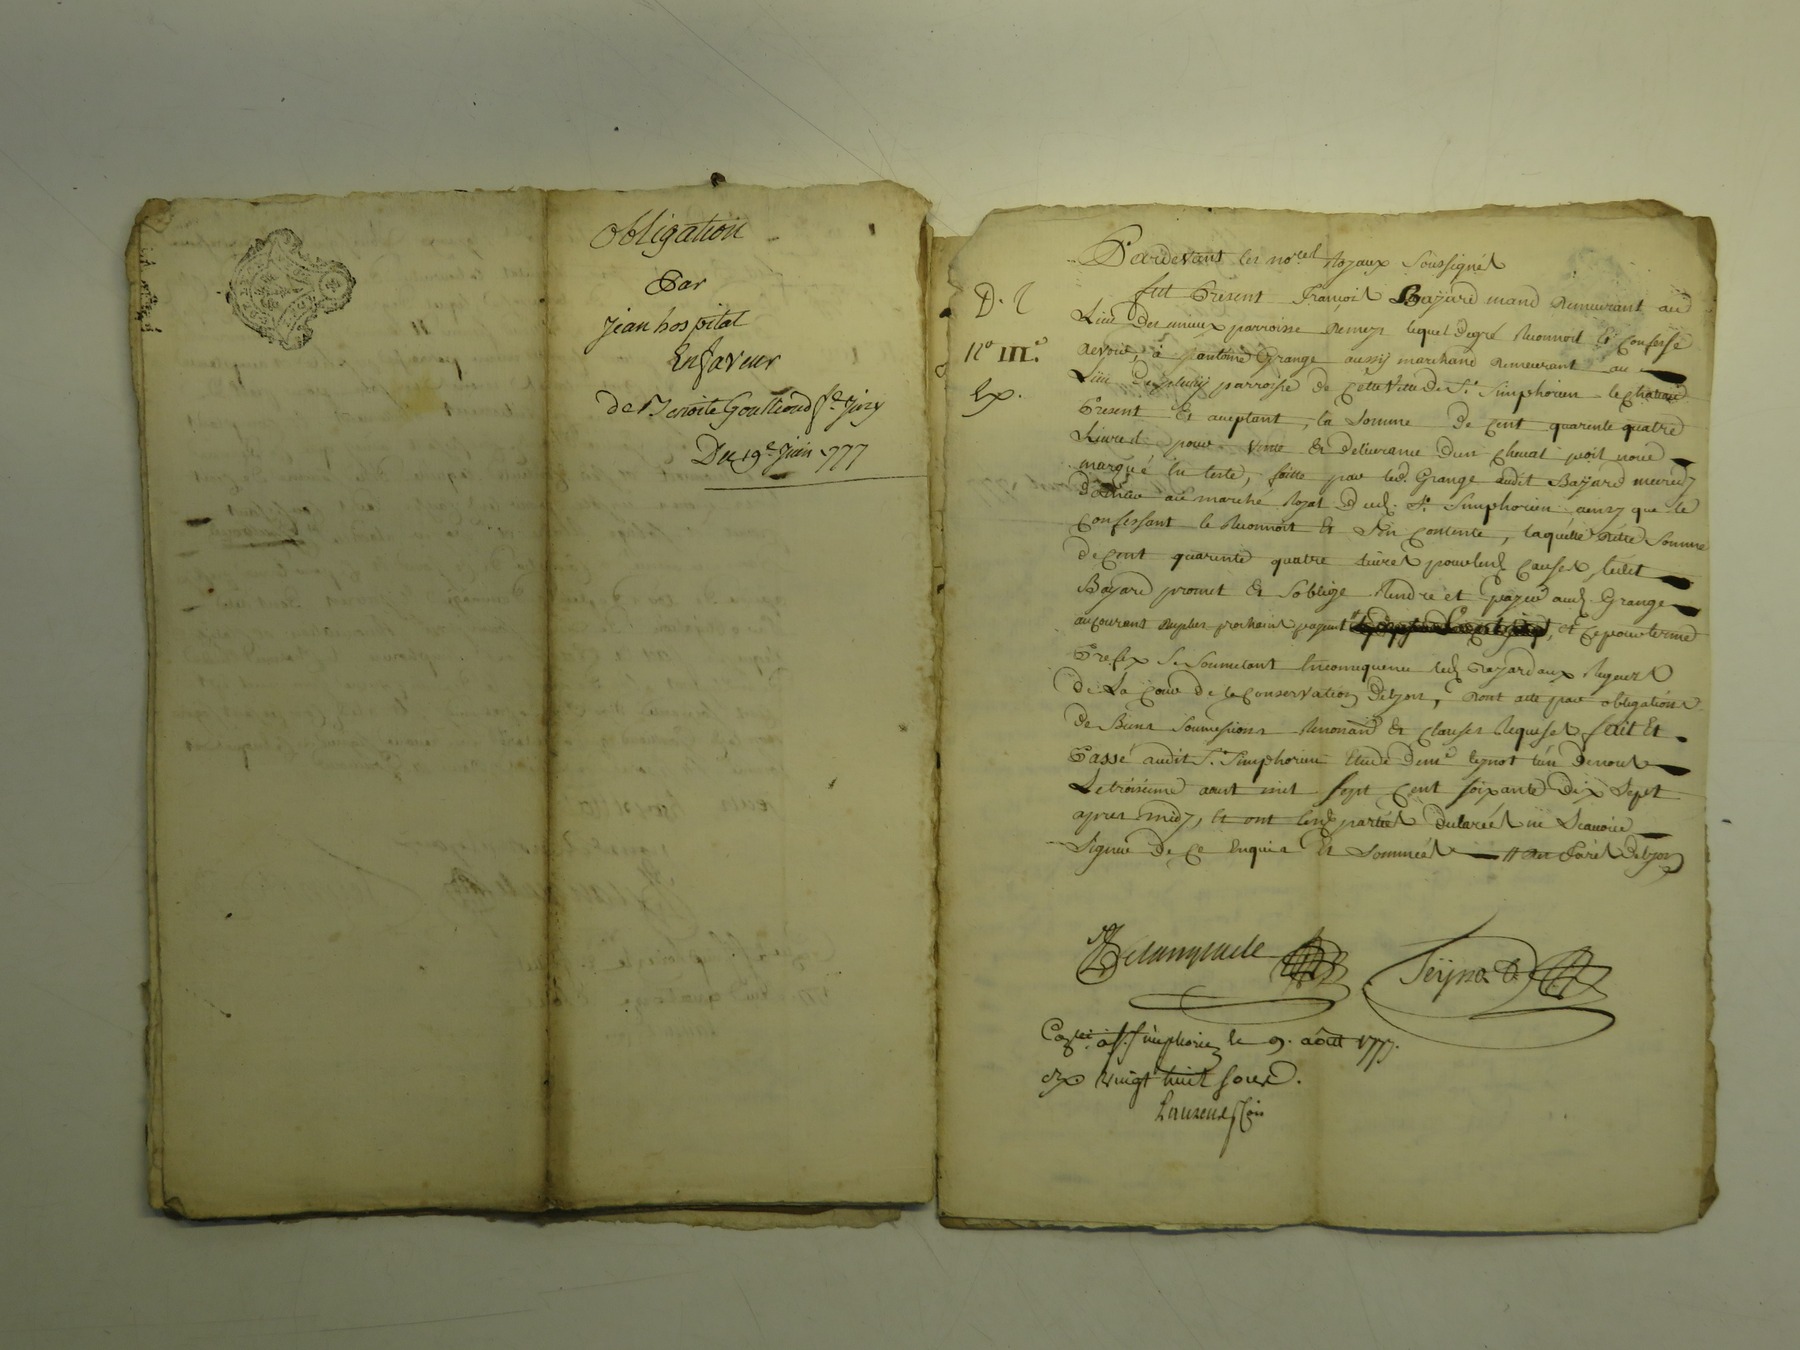 Obligation
Par
jean hospital
Enfaveur
de Benoite Gouttenoud
Du 19e juin 1777
Pardevant les no.res Royaux soussignés
D. C
fut Present françois Bayard mard Demeurant au
Lieu parroisse lequel degré Reconnoit & Confesse
N° III.e
devoir, à antoine Grange aussy marchand Demeurant au
Ex.
Lieu parroisse de Cette Ville de St. Simphorien le chateau
Present Et aceptant, la Somme De Cent quarente quatre
Livres pour vente Et Delivrance Dun Cheval poil noir
marqué En teste, faitte par led. Grange audit Bayard mercredy
au marché Royal Dud. St. Simphorien ainsy que le
Confessant le Reconnoit Et Sen Contente, laquelle Ditte Somme
de Cent quarente quatre Livres pour lesd. Causes, ledit
Bayard promet Et Soblige Rendre et payer aud. Grange
aucourant Duplus prochain payement et Ce pour terme
Prefix Se Soumetant Enconsequence led. Bayard aux Rigueurs
De La Cour de la Conservation Delyon, Dont acte par obligations
de Biens Soumissions Renonard Et Clauses Requises fait Et
Passé audit St. Simphorien Etude de me. teynot lun Denous
Le troisieme aout mil sept Cent soixante Dix Sept
apres midy, Et ont lesd. parties Declareés ne Scavoir
Signer De Ce Enquis Et Sommeés Delyon
Con.lé à St. Simphorien le 9. aoust 1777.
Rx vingt huit sous.